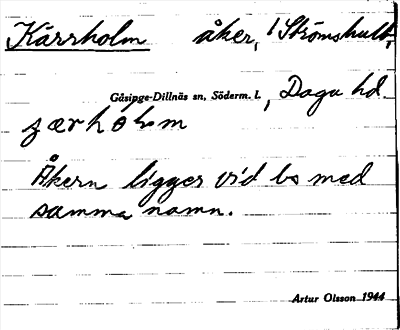 Kärrholm åker, Strömshult,
Gåsipge-Dillnäs sn, Söderm. l., Daga hd
Åkern ligger vid bs med
samma namn.
Artur Olsson 1944